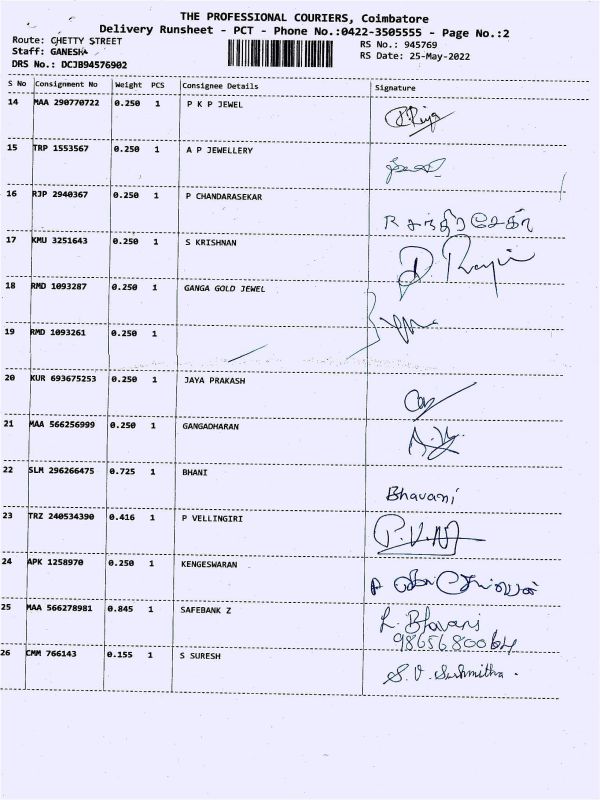 THE PROFESSIONAL COURIERS, Coimbatore
Delivery Runsheet - PCT - Phone No.:0422-3505555 - Page No.:2
Route: CHETTY STREET
RS No.: 945769
Staff: GANESH
RS Date: 25-May-2022
DRS No.: DCJB94576902
S No Consignment No Weight PCS Consignee Details Signature
14 MAA 290770722 0.250 1 P K P JEWEL
15 TRP 1553567 0.250 1 A P JEWELLERY
16 RJP 2940367 0.250 1 P CHANDARASEKAR
R சந்திரசேகர்
17 KMU 3251643 0.250 1 S KRISHNAN
18 RMD 1093287 0.250 1 GANGA GOLD JEWEL
19 RMD 1093261 0.250 1
20 KUR 693675253 0.250 1 JAYA PRAKASH
21 MAA 566256999 0.250 1 GANGADHARAN
22 SLM 296266475 0.725 1 BHANI
Bhavani
23 TRZ 240534390 0.416 1 P VELLINGIRI
24 APK 1258970 0.250 1 KENGESWARAN
25 MAA 566278981 0.845 1 SAFEBANK Z
L. Bhavani
9865680064
26 CMM 766143 0.155 1 S SURESH
S. V. Sushmitha.